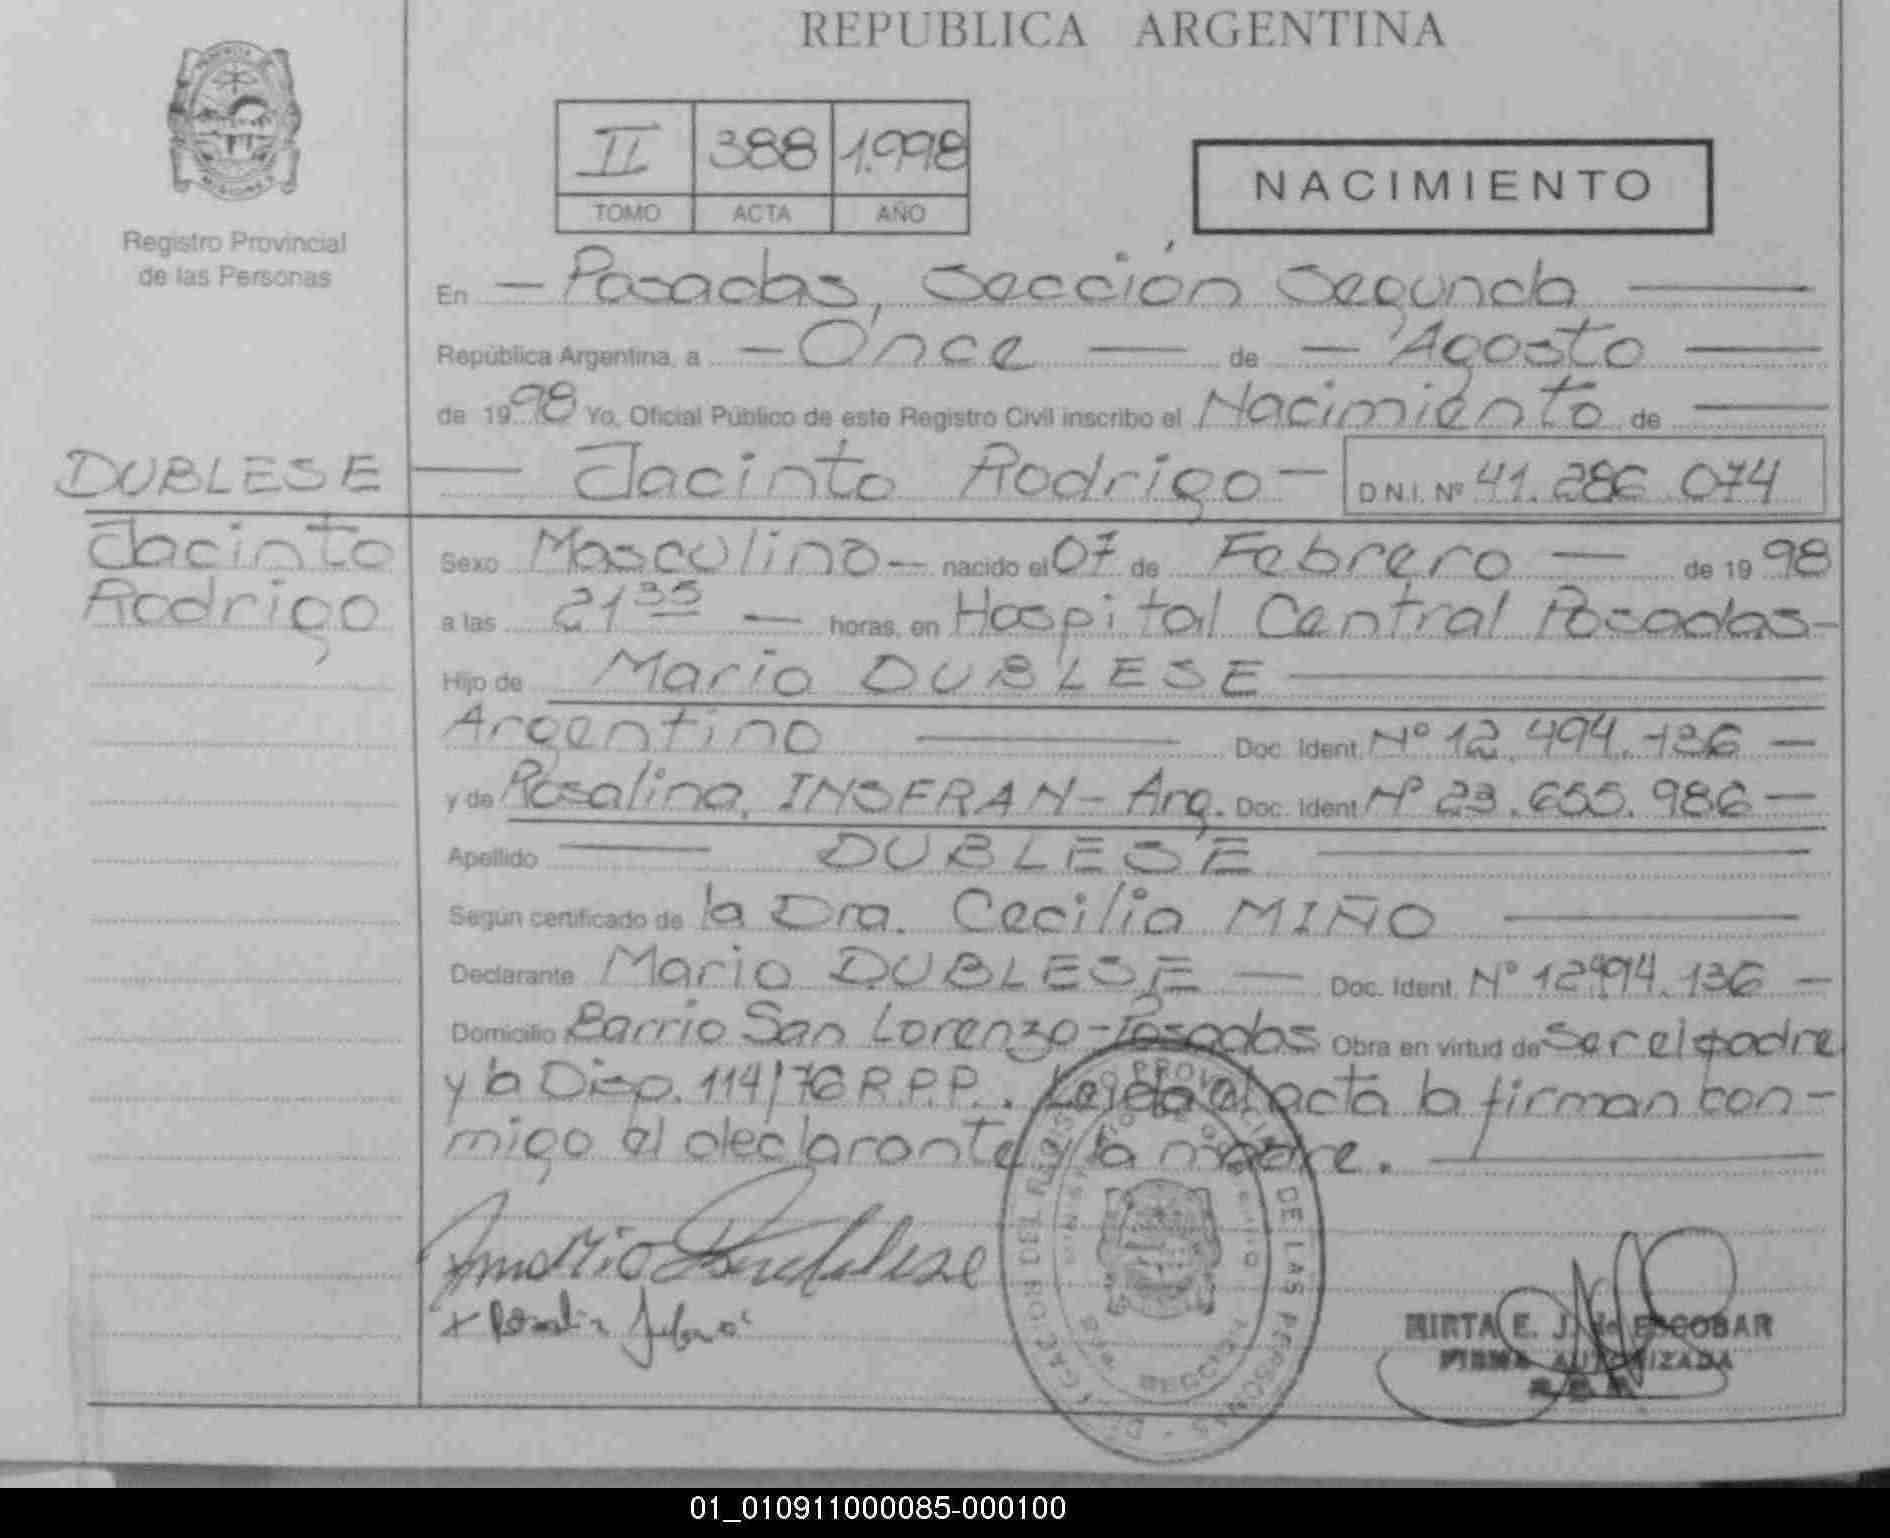 REPUBLICA ARGENTINA
Registro Provincial
de las Personas
II 388 1.998
TOMO ACTA AÑO
NACIMIENTO
En — Posadas, Sección Segunda —
República Argentina, a — Once — de — Agosto —
de 19 98 Yo, Oficial Público de este Registro Civil inscribo el Nacimiento de —
DUBLESE
Jacinto
Rodrigo
— Jacinto Rodrigo — D.N.I. Nº 41.286.074
Sexo Masculino — nacido el 07 de Febrero — de 19 98
a las 21 35 — horas, en Hospital Central Posadas-
Hijo de Mario DUBLESE —
Argentino — Doc. Ident. Nº 12.494.136 —
y de Rosalina, INSFRAN - Arg. Doc. Ident. Nº 23.655.986 —
Apellido — DUBLESE —
Según certificado de la Dra. Cecilia MIÑO —
Declarante Mario DUBLESE — Doc. Ident. Nº 12494.136 —
Domicilio Barrio San Lorenzo - Posadas Obra en virtud de Ser el padre
y la Disp. 114/76 R.P.P.. Leida el acta la firman con-
migo el declarante y la madre. —
MIRTA E. J. de ESCOBAR
FIRMA AUTORIZADA
01_010911000085-000100